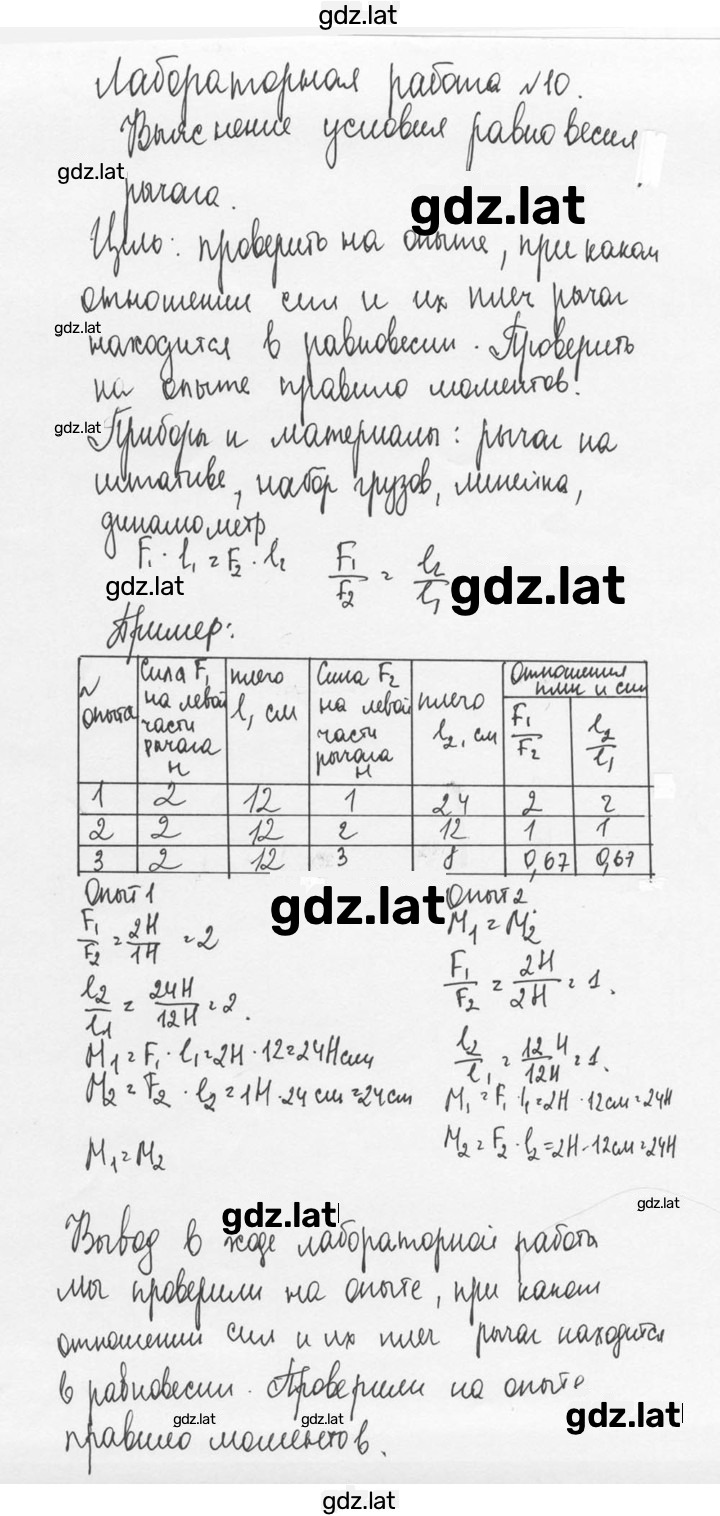 gdz.lat
Лабораторная работа №10.
Выяснение условия равновесия
gdz.lat
рычага.
gdz.lat
Цель: проверить на опыте, при каком
отношении сил и их плеч рычаг
gdz.lat
находится в равновесии. Проверить
на опыте правило моментов.
gdz.lat
Приборы и материалы: рычаг на
штативе, набор грузов, линейка,
динамометр
F₁ · l₁ = F₂ · l₂ F₁/F₂ = l₂/l₁
gdz.lat gdz.lat
Пример:
N опыта | Сила F₁ на левой части рычага Н | плечо l₁ см | Сила F₂ на левой части рычага Н | плечо l₂, см | Отношения плеч и сил F₁/F₂ | l₂/l₁
1 | 2 | 12 | 1 | 24 | 2 | 2
2 | 2 | 12 | 2 | 12 | 1 | 1
3 | 2 | 12 | 3 | 8 | 0,67 | 0,67
Опыт 1
F₁/F₂ = 2Н/1Н = 2
l₂/l₁ = 24Н/12Н = 2.
M₁ = F₁ · l₁ = 2Н · 12 = 24Нсм
M₂ = F₂ · l₂ = 1Н · 24 см = 24см
M₁ = M₂
gdz.lat
Опыт 2
M₁ = M₂
F₁/F₂ = 2Н/2Н = 1.
l₂/l₁ = 12Н/12Н = 1.
M₁ = F₁ · l₁ = 2Н · 12см = 24Н
M₂ = F₂ · l₂ = 2Н · 12см = 24Н
gdz.lat
gdz.lat
Вывод в ходе лабораторной работы
мы проверили на опыте, при каком
отношении сил и их плеч рычаг находится
в равновесии. Проверили на опыте
gdz.lat gdz.lat gdz.lat
правило моментов.
gdz.lat